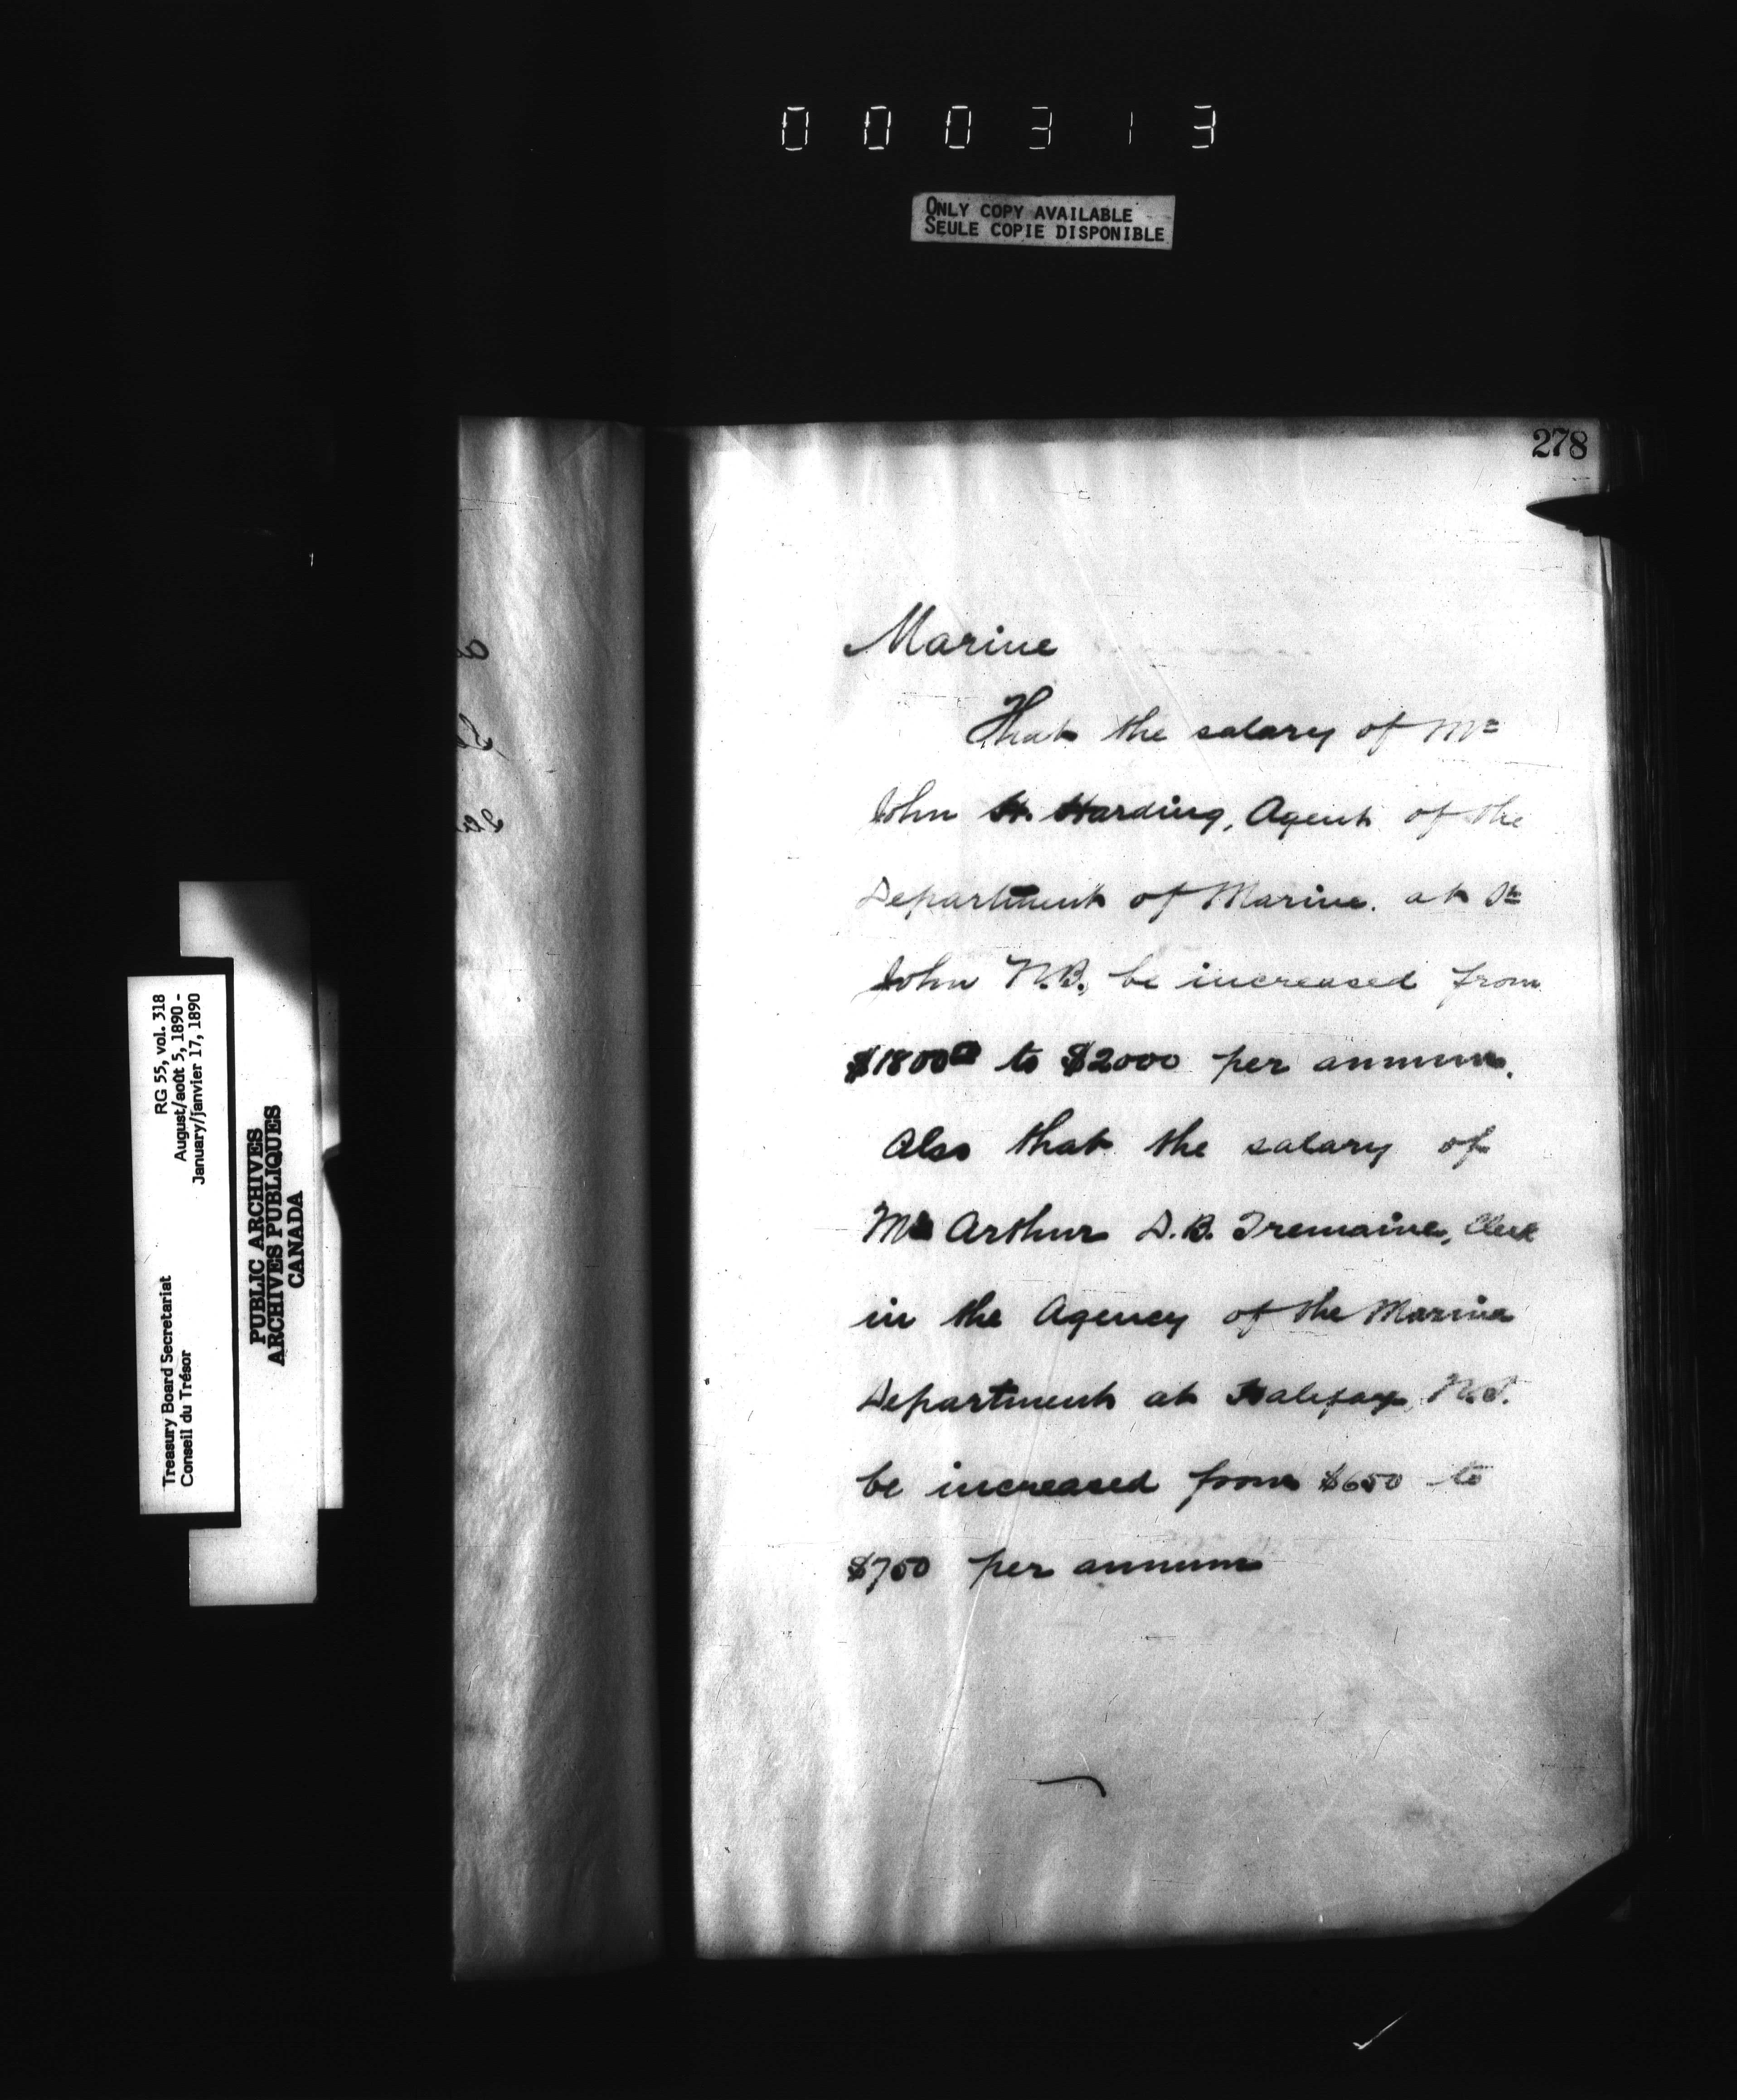 000313
ONLY COPY AVAILABLE
SEULE COPIE DISPONIBLE
278
Marine
That the salary of Mr
John H. Harding, Agent of the
Department of Marine. at St
John N.B., be increased from
$1800.00 to $2000 per annum.
Also that the salary of
Mr Arthur D.B. Tremaine, Clerk
in the Agency of the Marine
Department at Halifax, N.S.
be increased from $650 to
$750 per annum
RG 55, vol. 318
August/août 5, 1890 -
January/janvier 17, 1890
Treasury Board Secretariat
Conseil du Trésor
PUBLIC ARCHIVES
ARCHIVES PUBLIQUES
CANADA